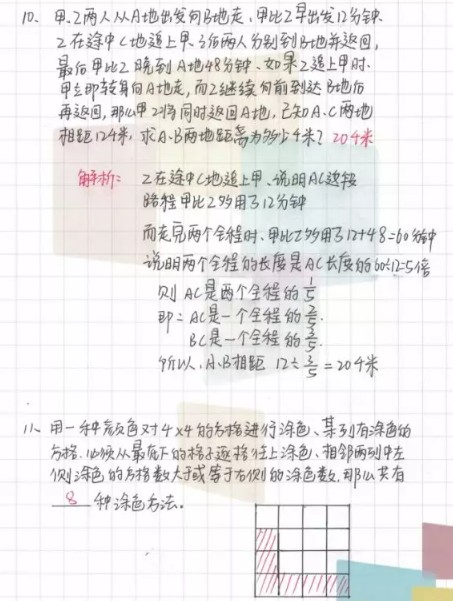 10、甲、乙两人从A地出发向B地走,甲比乙早出发12分钟
乙在途中C地追上甲、之后两人分别到B地并返回,
最后甲比乙晚到A地48分钟、如果乙追上甲时、
甲立即转身向A地走,而乙继续向前到达B地后
再返回,那么甲乙将同时返回A地,已知A、C两地
相距124米,求A、B两地距离为多少千米? 204米
解析: 乙在途中C地追上甲、说明AC这段
路程甲比乙多用了12分钟
而走完两个全程时、甲比乙多用了12+48=60分钟
说明两个全程的长度是AC长度的60÷12=5倍
则 AC是两个全程的1/5
即: AC是一个全程的2/5.
BC是一个全程的3/5.
所以、A、B相距 12÷3/5=204米
11、用一种颜色对4×4的方格进行涂色、某列有涂色的
方格、必须从最底下的格子逐格往上涂色、相邻两列中左
侧涂色的方格数大于或等于右侧的涂色数,那么共有
8 种涂色方法。